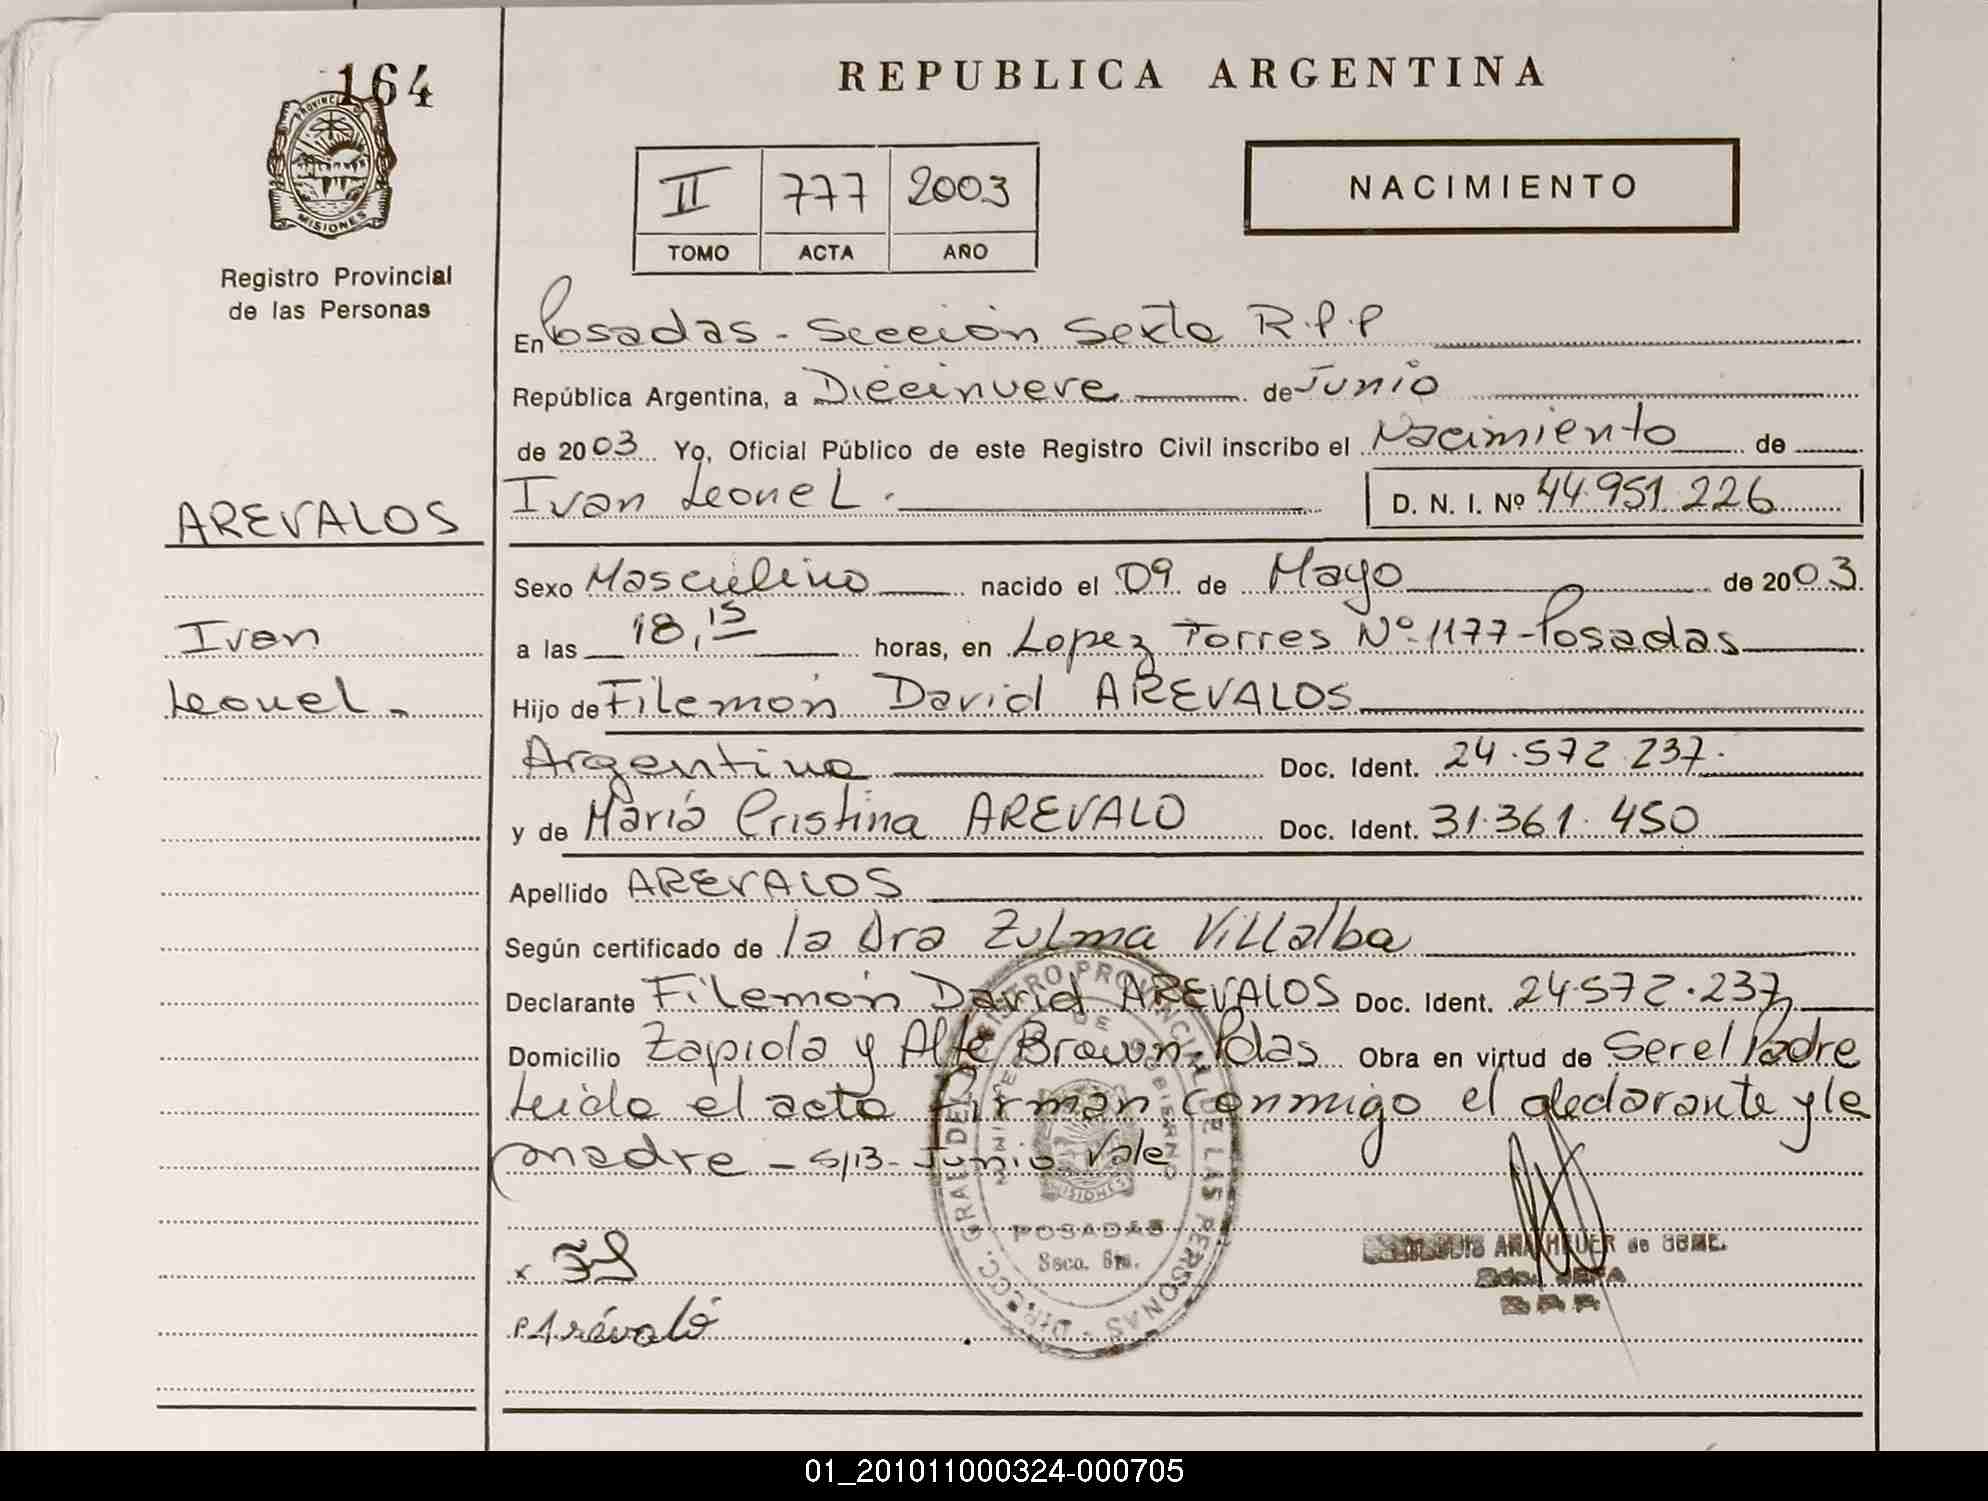 164
PROVINCIA
MISIONES
Registro Provincial
de las Personas
REPUBLICA ARGENTINA
II 777 2003
TOMO ACTA AÑO
NACIMIENTO
En Posadas - Sección Sexta R.P.P
República Argentina, a Diecinueve de Junio
de 2003 Yo, Oficial Público de este Registro Civil inscribo el Nacimiento de
Ivan Leonel.
D. N. I. Nº 44.951.226
AREVALOS
Ivan
Leonel.-
Sexo Masculino nacido el 09 de Mayo de 2003.
a las 18,15 horas, en Lopez Torres Nº 1177-Posadas
Hijo de Filemón David AREVALOS
Argentino Doc. Ident. 24.572.237.
y de Mariá Cristina AREVALO Doc. Ident. 31.361.450
Apellido AREVALOS
Según certificado de la Dra Zulma Villalba
Declarante Filemón David AREVALOS Doc. Ident. 24.572.237
Domicilio Zapiola y Alte Brown-Pdas Obra en virtud de Ser el Padre
Leida el acta firman conmigo el declarante y la
madre - S/B - Junio Vale
REGISTRO PROVINCIAL DE LAS PERSONAS
MINISTERIO DE GOBIERNO
MISIONES
POSADAS
Secc. 6ta.
R P P
Arévaló
01_201011000324-000705